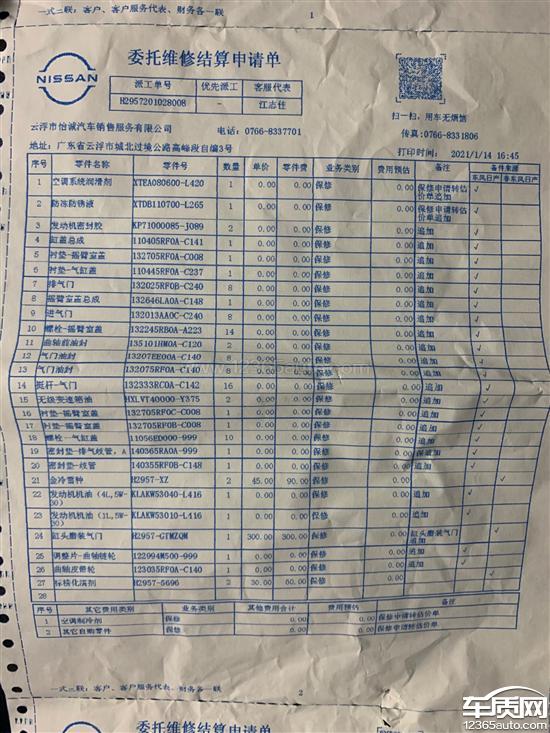 一式二联：客户、客户服务代表、财务各一联
1
NISSAN
委托维修结算申请单
派工单号 优先派工 客服代表
H2957201028008 - 江志佳
扫一扫，用车无烦恼
云浮市怡诚汽车销售服务有限公司 电话：0766-8337701 传真:0766-8331806
地址：广东省云浮市城北过境公路高峰段自编3号 打印时间： 2021/1/14 16:45
序号 零件名称 零件号 数量 单价 零件费 业务类别 费用预估 备注 备件来源
东风日产 非东风日产
1 空调系统润滑剂 XTEA080600-L420 1 0.00 0.00 保修 0.00 保修申请转估价单追加 √
2 防冻防锈液 XTDB110700-L265 1 0.00 0.00 保修 0.00 保修申请转估价单追加 √
3 发动机密封胶 KP71000085-J089 2 0.00 0.00 保修 0.00 追加 √
4 缸盖总成 110405RF0A-C141 1 0.00 0.00 保修 0.00 追加 √
5 衬垫-摇臂室盖 132705RF0A-C008 1 0.00 0.00 保修 0.00 追加 √
6 衬垫-气缸盖 110445RF0A-C237 1 0.00 0.00 保修 0.00 追加 √
7 排气门 132025RF0B-C240 8 0.00 0.00 保修 0.00 追加 √
8 摇臂室总成 132646LA0A-C148 1 0.00 0.00 保修 0.00 追加 √
9 进气门 132013AA0C-C240 8 0.00 0.00 保修 0.00 追加 √
10 螺栓-摇臂室盖 132245RB0A-A223 14 0.00 0.00 保修 0.00 追加 √
11 曲轴前油封 135101HM0A-C120 2 0.00 0.00 保修 0.00 追加 √
12 气门油封 13207EE00A-C140 8 0.00 0.00 保修 0.00 追加 √
13 气门油封 132075RF0A-C140 8 0.00 0.00 保修 0.00 追加 √
14 挺杆-气门 132333RC0A-C142 16 0.00 0.00 保修 0.00 追加 √
15 无级变速箱油 HXLVT40000-Y375 2 0.00 0.00 保修 0.00 追加 √
16 衬垫-摇臂室盖 132705RF0C-C008 1 0.00 0.00 保修 0.00 追加 √
17 衬垫-摇臂室盖 132705RF0B-C008 1 0.00 0.00 保修 0.00 追加 √
18 螺栓-气缸盖 11056ED000-999 10 0.00 0.00 保修 0.00 追加 √
19 密封垫-排气歧管，A 140365RA0A-C148 1 0.00 0.00 保修 0.00 保追加 √
20 密封垫-歧管 140355RF0B-C148 1 0.00 0.00 保修 0.00 追加 √
21 金冷雪种 H2957-XZ 2 45.00 90.00 保修 0.00 追加 √
22 发动机机油（4L,5W-30） KLAKW53040-L416 1 0.00 0.00 保修 0.00 追加 √
23 发动机机油（1L,5W-30） KLAKW53010-L416 1 0.00 0.00 保修 0.00 追加 √
24 缸头磨装气门 H2957-GTMZQM 1 300.00 300.00 保修 0.00 缸头磨装气门追加 √
25 调整片-曲轴链轮 122994M500-999 1 0.00 0.00 保修 0.00 追加 √
26 曲轴皮带轮 123035RF0A-C140 1 0.00 0.00 保修 0.00 追加 √
27 标榜化清剂 H2957-5696 2 30.00 60.00 保修 0.00 追加 √
28
序号 其它费用类别 业务类别 其他费用合计 费用预估 备注
1 空调制冷剂 保修 0.00 0.00 保修申请转估价单
2 其它自购零件 保修 0.00 0.00 保修申请转估价单
一式二联：客户、客户服务代表、财务各一联
2
委托维修结算申请单
www.12365auto.com
车质网
12365auto.com